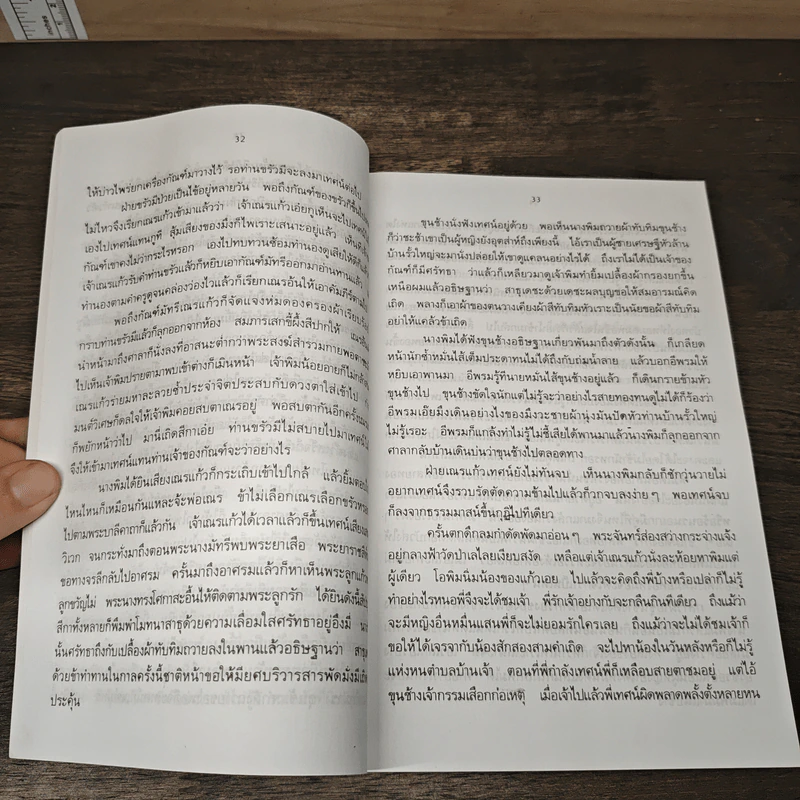 inches
32
ให้บ่าวไพร่ยกเครื่องกัณฑ์มาวางไว้ รอท่านขรัวมีจะลงมาเทศน์ต่อไป
ฝ่ายขรัวมีป่วยเป็นไข้อยู่หลายวัน พอถึงกัณฑ์ของขรัวก็ขึ้น
ไม่ไหวจึงเรียกเณรแก้วเข้ามาแล้วว่า เจ้าเณรแก้วเอ๋ยกูเห็นจะไปเทศน์
เองไปเทศน์แทนกูที สุ้มเสียงของมึงก็ไพเราะเสนาะอยู่แล้ว
กัณฑ์เขาคงไม่ว่ากระไรหรอก เองไปทบทวนซ้อมทำนองดูเสียให้ดี
เจ้าเณรแก้วรับคำท่านขรัวแล้วก็หยิบเอากัณฑ์มัทรีออกมาอ่านทานแล้ว
ทำนองตามคำครูดูจนคล่องว่องไวแล้วก็เรียกเณรอ้นให้เอาคัมภีร์
พอถึงกัณฑ์มัทรีเณรแก้วก็จัดแจงห่มดองครองผ้าเรียบร้อย
กราบท่านขรัวมีแล้วก็ลุกออกจากห้อง สมภารเสกขี้ผึ้งสีปากให้
นำหน้ามาถึงศาลาก็นั่งลงที่อาสนะต่ำกว่าพระสงฆ์สำรวมกาย
ไปเห็นเจ้าพิมปรายตามาพบเข้าต่างก็เมินหน้า เจ้าพิมน้อยอายก็ไม่
เณรแก้วร่ายมหาละลวยซ้ำประจำจิตประสบกับดวงตาใส่เข้าไป
มนตัวเศษก็ดลใจให้เจ้าพิมคอยสบตาเณรอยู่ พอสบตากันอีกครั้ง
ก็พยักหน้าว่าไป มานี่เถิดสีกาเอ๋ย ท่านขรัวมีไม่สบายไปมาเทศน์
จึงให้เข้ามาเทศน์แทนท่านเจ้าของกัณฑ์จะว่าอย่างไร
นางพิมได้ยินเสียงเณรแก้วก็กระเถิบเข้าไปใกล้ แล้วยิ้มตอบ
ไหนไหนก็เหมือนกันแหละจ้ะพ่อเณร ข้าไม่เลือกเณรเลือกขรัว
ไปตามพระบาลีคาถาก็แล้วกัน เจ้าเณรแก้วได้เวลาแล้วก็ขึ้นเทศน์เสียง
วิเวก จนกระทั่งมาถึงตอนพระนางมัทรีพบพระยาเสือ พระยาราชสีห์
ขอทางจรลีกลับไปอาศรม ครั้นมาถึงอาศรมแล้วก็หาเห็นพระลูกแก้ว
ลูกขวัญไม่ พระนางทรงโศกาสะอื้นไห้ติดตามพระลูกรัก ได้ยินดังนี้
สีกาทั้งหลายก็พึมพำโมทนาสาธุด้วยความเลื่อมใสศรัทธาอยู่อึงมี่
นั้นศรัทธาถึงกับเปลื้องผ้าทับทิมถวายลงในพานแล้วอธิษฐานว่า
ด้วยข้าทำทานในกาลครั้งนี้ชาติหน้าขอให้มียศบริวารสารพัดมั่งมี
ประคุ้น
33
ขุนช้างนั่งฟังเทศน์อยู่ด้วย พอเห็นนางพิมถวายผ้าทับทิมขุนช้าง
ก็ว่าชะช้าเขาเป็นผู้หญิงยังอุตส่าห์ถึงเพียงนี้ ไอ้เราเป็นผู้ชายเศรษฐีหัวล้าน
บ้านรั้วใหญ่จะมานั่งปล่อยให้เขาดูแคลนอย่างไรได้ ถึงเราไม่ได้เป็นเจ้าของ
กัณฑ์ก็มีศรัทธา ว่าแล้วก็เหลียวมาดูเจ้าพิมทำยิ้มเปลื้องผ้ากรองยกขึ้น
เหนือผมแล้วอธิษฐานว่า สาธุเดชะด้วยเดชะผลบุญขอให้สมอารมณ์คิด
เถิด พลางก็เอาผ้าของตนวางเคียงผ้าสีทับทิมหัวเราะเป็นนัยขอผ้าสีทับทิม
อย่าให้แคล้วข้าเถิด
นางพิมได้ฟังขุนช้างอธิษฐานเกี่ยวพันมาถึงตัวดังนั้น ก็เกลียด
หน้านักซ้ำหมั่นไส้เต็มประดาทนไม่ได้ถึงกับถ่มน้ำลาย แล้วบอกอีพรมให้
หยิบเอาพานมา อีพรมรู้ที่นายหมั่นไส้ขุนช้างอยู่แล้ว ก็เดินกรายข้ามหัว
ขุนช้างไป ขุนช้างขัดใจนักแต่ไม่รู้จะว่าอย่างไรสายทองทนดูไม่ได้ก็ร้องว่า
อีพรมเอ๊ยมึงเดินอย่างไรของมึงวะชายผ้านุ่งมันปัดหัวท่านบ้านรั้วใหญ่
ไม่รู้เรอะ อีพรมก็แกล้งทำไม่รู้ไม่ชี้เสียได้พานมาแล้วนางพิมก็ลุกออกจาก
ศาลากลับบ้านเดินบ่นว่าขุนช้างไปตลอดทาง
ฝ่ายเณรแก้วเทศน์ยังไม่ทันจบ เห็นนางพิมกลับก็ชักวุ่นวายไม่
อยากเทศน์จึงรวบรัดตัดความข้ามไปแล้วก็วกจบลงง่าย ๆ พอเทศน์จบ
ก็ลงจากธรรมมาสน์ขึ้นกุฏิไปทีเดียว
ครั้นตกดึกลมกำดัดพัดมาอ่อน ๆ พระจันทร์ส่องสว่างกระจ่างแจ้ง
อยู่กลางฟ้าวัดป่าเลไลยเงียบสงัด เหลือแต่เจ้าเณรแก้วนั่งละห้อยหาพิมแต่
ผู้เดียว โอพิมนิ่มน้องของแก้วเอย ไปแล้วจะคิดถึงพี่บ้างหรือเปล่าก็ไม่รู้
ทำอย่างไรหนอพี่จึงจะได้ชมเจ้า พี่รักเจ้าอย่างกับจะกลืนกินทีเดียว ถึงแม้ว่า
จะมีหญิงอื่นหมื่นแสนพี่ก็จะไม่ยอมรักใครเลย ถึงแม้ว่าจะไม่ได้ชมเจ้าก็
ขอให้ได้เจรจากับน้องสักสองสามคำเถิด จะไปหาน้องในวันหลังหรือก็ไม่รู้
แห่งหนตำบลบ้านเจ้า ตอนที่พี่กำลังเทศน์พี่ก็เหลือบสายตาชมอยู่ แต่ไอ้
ขุนช้างเจ้ากรรมเสือกก่อเหตุ เมื่อเจ้าไปแล้วพี่เทศน์ผิดพลาดพลั้งตั้งหลายหน